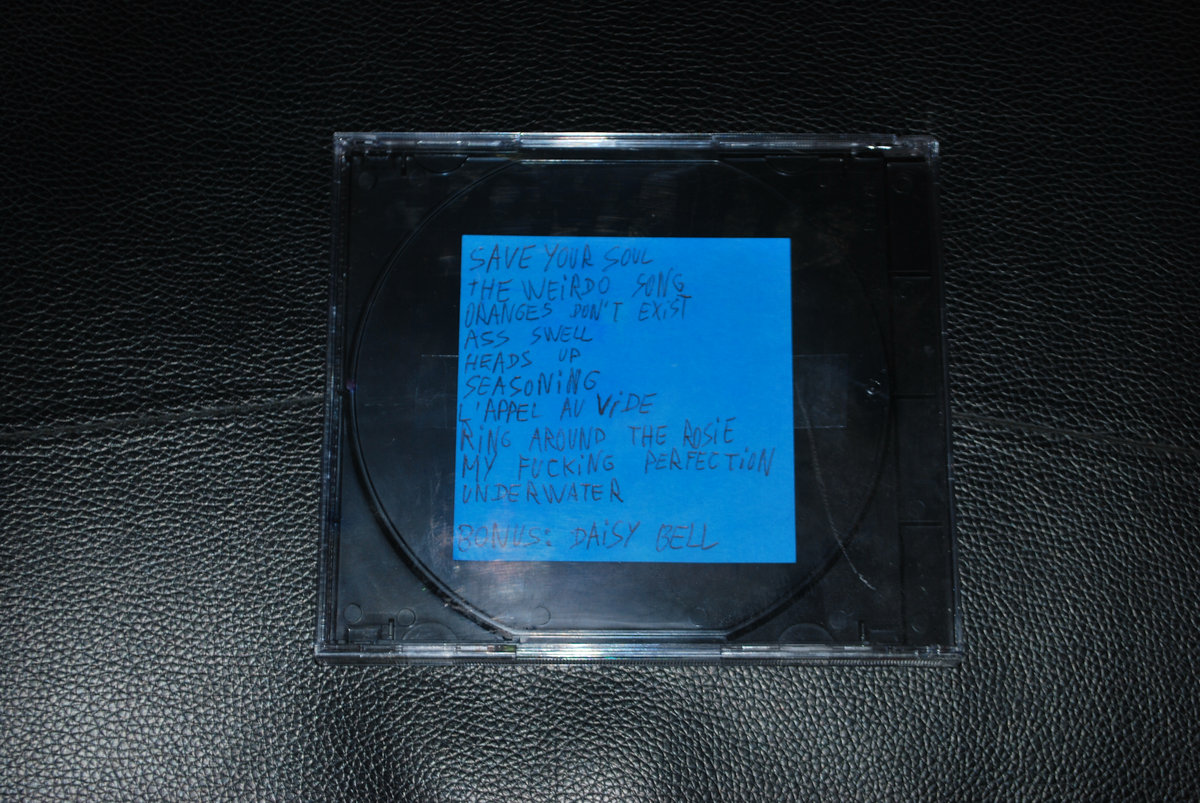 SAVE YOUR SOUL
THE WEiRDO SONG
ORANGES DON'T EXiST
ASS SWELL
HEADS UP
SEASONiNG
L'APPEL AU ViDE
RiNG AROUND THE ROSiE
MY FUCKiNG PERFECTiON
UNDERWATER
BONUS: DAiSY BELL